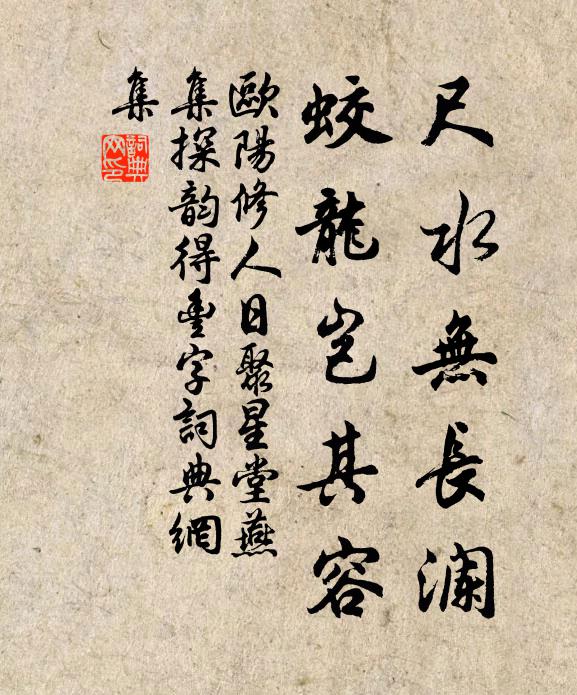 尺水無長瀾
蛟龍豈其容
歐陽修人日聚星堂燕
集探韵得豐字詞典網
集
詞典
网印